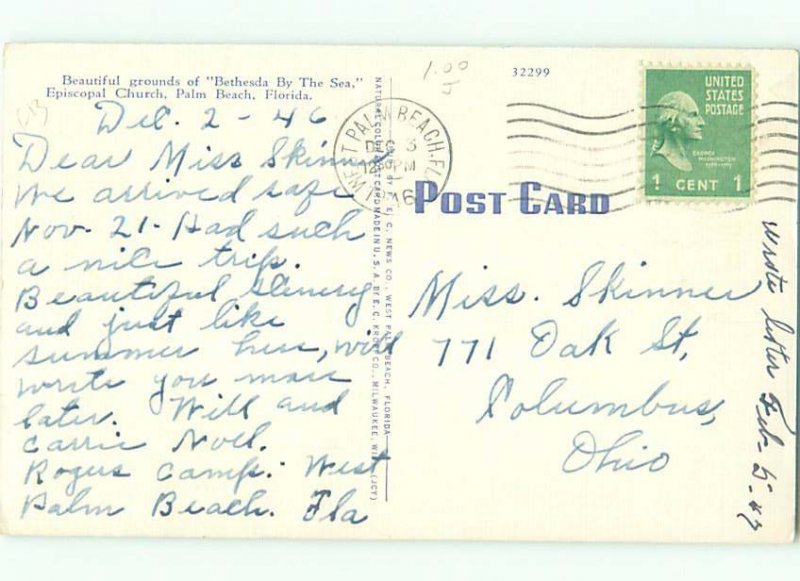 Beautiful grounds of "Bethesda By The Sea,"
Episcopal Church, Palm Beach, Florida.
Dec. 2 - 46
Dear Miss Skinner
We arrived safe
Nov. 21 - Had such
a nice trip.
Beautiful Scenery
and just like
summer here, will
write you more
later. Will and
Carrie Noel.
Rogers Camp. West
Palm Beach. Fla
NATURAL COLOR POST CARD MADE IN U. S. A. BY E. C. KROPP CO., MILWAUKEE, WIS. (JCY)
C. NEWS CO., WEST PALM BEACH, FLORIDA
1.00
32299
WEST PALM BEACH, FLA.
DEC 3
PM
POST CARD
UNITED
STATES
POSTAGE
GEORGE
WASHINGTON
1 CENT 1
Miss. Skinner
771 Oak St,
Columbus,
Ohio
wrote letter Feb-5-47